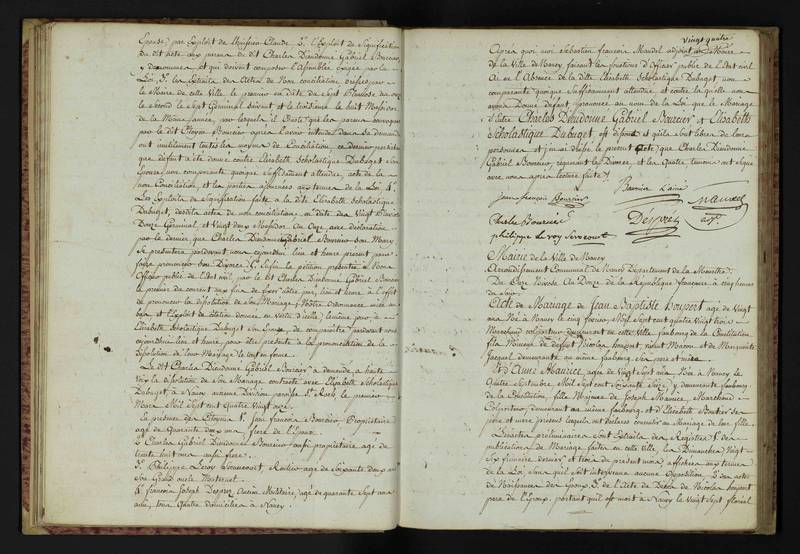 Epouse; par Exploit de l'huissier Claude 3.° l'Exploit de Signification
du dit acte aux parens du dit Charles Dieudonné Gabriel Bourcier,
y denommés et qui doivent composer l'Assemblée exigée par la
Loi, 3.° les Extraits des Actes de Non conciliation, dressés par
le Maire de cette Ville, le premier en date du Sept
le Second le Sept Germinal suivant et le troisieme le huit Messidor
de la Même année, par lesquels il Conste que les parens convoqués
par le dit Citoyen Bourcier après l'avoir entendu dans sa demande
ont inutilement tenté les moyens de Conciliation,
que défaut a été donné contre Elisabeth Scholastique Dubuget Son
Epouse, non comparante quoique Suffisament attendue, acte de la
non Conciliation, et les parties ajournées aux termes de la Loi, 4.°
Les Exploits de Signification faite à la dite Elisabeth Scholastique
Dubuget, desdits actes de non conciliation, en date des Vingt
Douze Germinal, et Vingt deux Messidor An Onze, avec déclaration
par le dernier que Charles Dieudonné Gabriel Bourcier Son Mary
Se presentera pardevant nous cejourd'hui lieu et heure present pour
faire prononcer Son Divorce 5.° Enfin la petition présentée à Nous
Officier public de l'état civil par le dit Charles Dieudonné Gabriel Bourcier
le premier du courant aux fins de fixer notre jour, lieu et heure à l'effet
de prononcer la dissolution de Son Mariage, Nôtre Ordonnance mise au
bas, et l'Exploit de citation donnée en vertu d'icelle,
Elisabeth Scholastique Dubuget Son Epouse, de comparoitre pardevant nous
cejourd'hui lieu et heure, pour être présente à la prononciation de la
dissolution de leur Mariage le tout en forme.
Le dit Charles Dieudonné Gabriel Bourcier a demandé, à haute
voix la dissolution de Son Mariage contracté avec Elisabeth Scholastique
Dubuget, à Nancy ancienne Division paroisse St. Roch le premier
Mars Mil Sept cent Quatre Vingt
En présence des Citoyens 1.° Jean François Bourcier Propriétaire
agé de Quarante deux ans frere de l'Epoux
2.° Charles Gabriel Dieudonné Bourcier aussi propriétaire agé de
trente huit ans aussi frere.
3.° Philippe Leroy Serocourt, Rentier agé de Soixante deux ans
Son Grand oncle Maternel.
4.° François Joseph Desprez, Ancien Militaire, agé de quarante Sept ans
ami, tous Quatre domiciliés à Nancy.
Vingt quatre
Après quoi moi Sébastien françois Mandel adjoint au Maire
de la Ville de Nancy, faisant les fonctions d'Officier public de l'Etat civil
Ai en l'Absence de la ditte Elisabeth Scholastique Dubuget non
comparante quoique Suffisament attendue et contre laquelle nous
avons Donné défaut prononcé au nom de la Loi que le Mariage
d'Entre Charles Dieudonné Gabriel Bourcier et Elisabeth
Scholastique Dubuget, est dissous et qu'ils Sont libres de leurs
personnes et j'en ai dressé le present Acte, que Charles Dieudonné
Gabriel Bourcier, requerant le Divorce, et les Quatre témoins ont Signé
avec nous après lecture faite.
Jean françois Bourcier
Charles Bourcier
Desprez
philippe Le roy Serocourt
Mairie de la Ville de Nancy
Arrondissement Communal de Nancy Département de la Meurthe.
Du Onze Nivose An Douze de la République française à cinq heures
du Soir
Acte de Mariage de Jean Baptiste houpert agé de Vingt
ans Né à Nancy le cinq fevrier, Mil Sept cent quatre Vingt trois
Marchand colporteur demeurant en cette Ville faubourg de la Constitution
fils Mineur de deffunt Nicolas houpert, vivant Macon et de Marguerite
Jacquel demeurante au même faubourg, Ses pere et mere.
Et d'Anne Maurice, agée de Vingt Sept ans Née à Nancy le
Quatre Septembre, Mil Sept cent Soixante Seize, y demeurante faubourg
de la Constitution, fille Majeure de Joseph Maurice, Marchand
Colporteur, demeurant au même faubourg, et d'Elisabeth Ses
pere et mere presens lesquels ont déclaré consentir au Mariage de leur fille.
Les actes préliminaires Sont Extraits des Registres 1.° des
publications de Mariage faites en cette Ville, les Dimanches Vingt
Six frimaire dernier et trois du présent mois affichées aux termes
de la Loi, Sans qu'il Soit intervenu aucune Opposition, 2.° des actes
de Naissances des Epoux, 3.° de l'Acte de Décès de Nicolas houpert
pere de l'Epoux, portant qu'il est mort à Nancy le Vingt Sept floréal